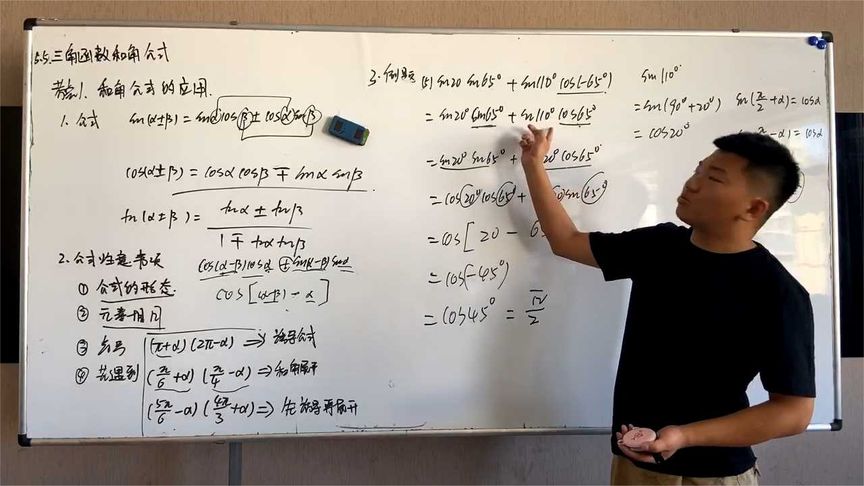 5.5.三角函数和角公式
考点1. 和角公式的应用.
1. 公式 sin(α±β) = sinα cosβ ± cosα sinβ
cos(α±β) = cosα cosβ ∓ sinα sinβ
tan(α±β) = tanα ± tanβ / 1 ∓ tanα tanβ
2. 公式注意事项
cos(α-β)cosα + sin(α-β)sinα
① 公式的形态.
cos[(α-β)-α]
②
③ 符号 (π+α) (2π-α) ⇒ 诱导公式
④ 若遇到 (π/6+α) (π/4-α) ⇒ 和角展开
(5π/6-α) (4π/3+α) ⇒ 先诱导再展开
3. 例题 (5) sin20 sin65° + sin110° cos(-65°)
= sin20° sin65° + sin110° cos65°
= sin20° sin65° + 20° cos65°
= cos20° cos65° + sin65°
= cos[20 - 6
= cos(-45°)
= cos45° = π/2
sin110°
= sin(90°+20°) sin(π/2+α) = cosα
= cos20° -α) = cosα